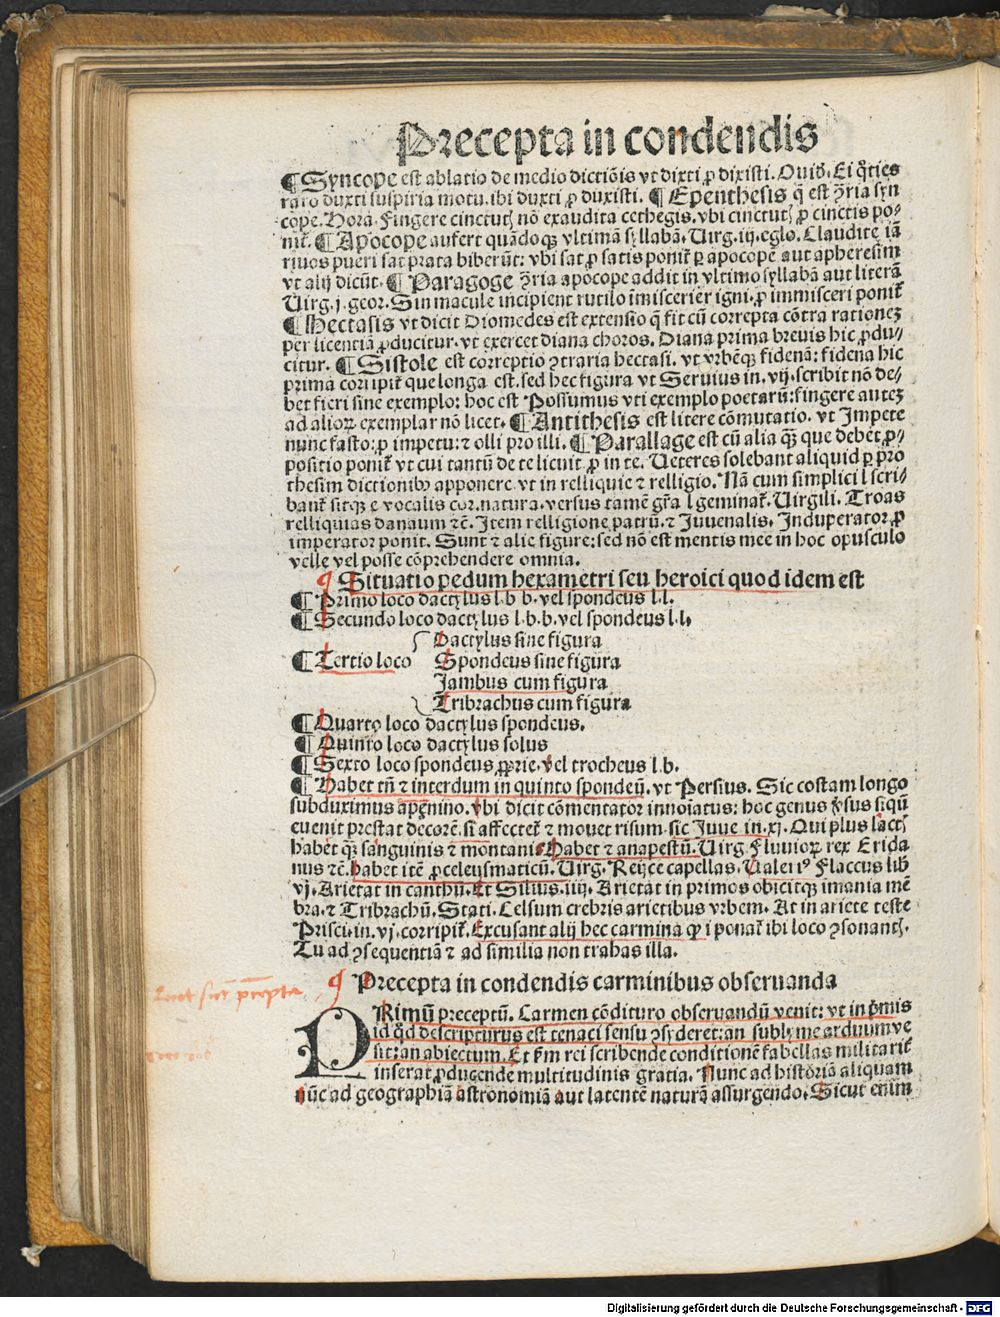 Precepta in condendis
¶ Syncope est ablatio de medio dictiōis vt dixti ꝓ dixisti. Ouid. Ei q̄ties
raro duxti suspiria motu. ibi duxti ꝓ duxisti. ¶ Epenthesis q̄ est ꝯ̄ria syn
cope. Hora. Fingere cinctutꝫ nō exaudita cethegis. vbi cinctutꝫ ꝓ cinctis po⸗
nit᷑. ¶ Apocope aufert quādoqꝫ vltimā syllabā. Virg. iij. eglo. Claudite iā
riuos pueri sat prata biberūt: vbi sat ꝓ satis ponit᷑ ꝑ apocope aut apheresim
vt alij dicūt. ¶ Paragoge ꝯ̄ria apocope addit in vltimo syllabā aut literā
Virg. j. geor. Sin macule incipient rutilo imiscerier igni. ꝓ immisceri ponit᷑
¶ Hectasis vt dicit Diomedes est extensio q̄ fit cū correpta cōtra rationeꝫ
per licentiā ꝓducitur. vt exercet diana choros. Diana prima breuis hic ꝓdu⸗
citur. ¶ Sistole est correptio ꝯtraria hectasi. vt vrbēqꝫ fidenā: fidena hic
prima corripit᷑ que longa est. sed hec figura vt Seruius in. vij. scribit nō de⸗
bet fieri sine exemplo: hoc est Possumus vti exemplo poetarū: fingere auteꝫ
ad alioꝝ exemplar nō licet. ¶ Antithesis est litere cōmutatio. vt Impete
nunc fasto: ꝓ impetu: ⁊ olli pro illi. ¶ Parallage est cū alia q̄ꝫ que debet ꝓ⸗
positio ponit᷑ vt cui tantū de te licuit ꝓ in te. Veteres solebant aliquid ꝑ pro
thesim dictionibꝰ apponere vt in relliquie ⁊ relligio. Nā cum simplici l scri⸗
bant᷑ sitqꝫ e vocalis cor. natura. versus tamē gr̄a l geminat᷑. Virgili. Troas
relliquias danaum ⁊c̄. Item relligione patrū. ⁊ Iuuenalis. Induperator ꝓ
imperator ponit. Sunt ⁊ alie figure: sed nō est mentis mee in hoc opusculo
velle vel posse cōprehendere omnia.
¶ Situatio pedum hexametri seu heroici quod idem est
¶ Primo loco dactylus l. b b. vel spondeus l. l.
¶ Secundo loco dactylus l. b. b. vel spondeus l. l.
Dactylus sine figura
¶ Tertio loco Spondeus sine figura
Iambus cum figura
Tribrachus cum figura
¶ Quarto loco dactylus spondeus.
¶ Quinto loco dactylus solus
¶ Sexto loco spondeus ꝓprie. vel trocheus l. b.
¶ Habet tn̄ ⁊ interdum in quinto spondeū. vt Persius. Sic costam longo
subduximus apēnino. vbi dicit cōmentator innoiatus: hoc genus ꝟsus si qn̄
euenit prestat decorē. si affectet᷑ ⁊ mouet risum. sic Juue in. xj. Qui plus lactꝫ
habēt qꝫ sanguinis ⁊ montanis. Habet ⁊ anapestū. Virg Fluuioꝝ rex Erida
nus ⁊c̄. habet itē ꝓceleusmaticū. Virg. Reijce capellas. Valeriꝰ Flaccus lib
vj. Arietat in canthū. Et Silius. iiij. Arietat in primos obicitqꝫ imania mē
bra. ⁊ Tribrachū. Stati. Celsum crebris arietibus vrbem. At in ariete teste
Prisci. in. vj. corripit᷑. Excusant alij hec carmina qꝛ i ponat᷑ ibi loco ꝯsonantꝫ.
Tu ad ꝯsequentiā ⁊ ad similia non trahas illa.
¶ Precepta in condendis carminibus obseruanda
PRimū preceptū. Carmen cōdituro obseruandū venit: vt in p̄mis
id qd̄ descripturus est tenaci sensu ꝯsideret: an sublyme arduum ve
sit: an abiectum. Et fm̄ rei scribende conditionē fabellas militarit᷑
inserat ꝓducende multitudinis gratia. Nunc ad historiā aliquam
nūc ad geographiā astronomiā aut latentē naturā assurgendo. Sicut enim
Digitalisierung gefördert durch die Deutsche Forschungsgemeinschaft - DFG